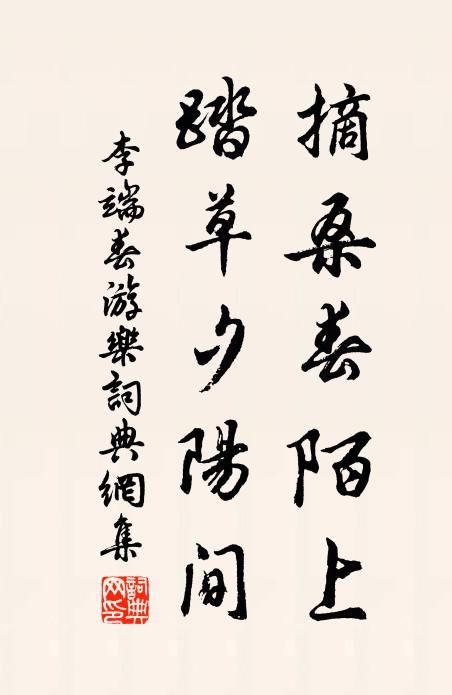 摘桑春陌上
踏草夕陽间
李端春游樂詞典網集
詞典網印